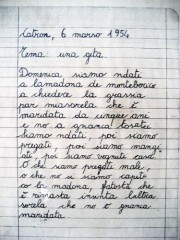 Latron, 6 marso 1954
Tema: una gita
Domenica siamo ndati
a lamadona de monteborico
a chiedere la grassia
par miasorela che è
maridata da cinque ani
e no a gnancá
siamo ndati, poi siamo
pregati, poi siamo mangi
ati, poi siamo vegnuti casa
O che siamo pregati male,
o che no si siamo capiti
co la madona, fatostà che
è rimasta insinta l'altra
sorela che no è gnanca
maridata